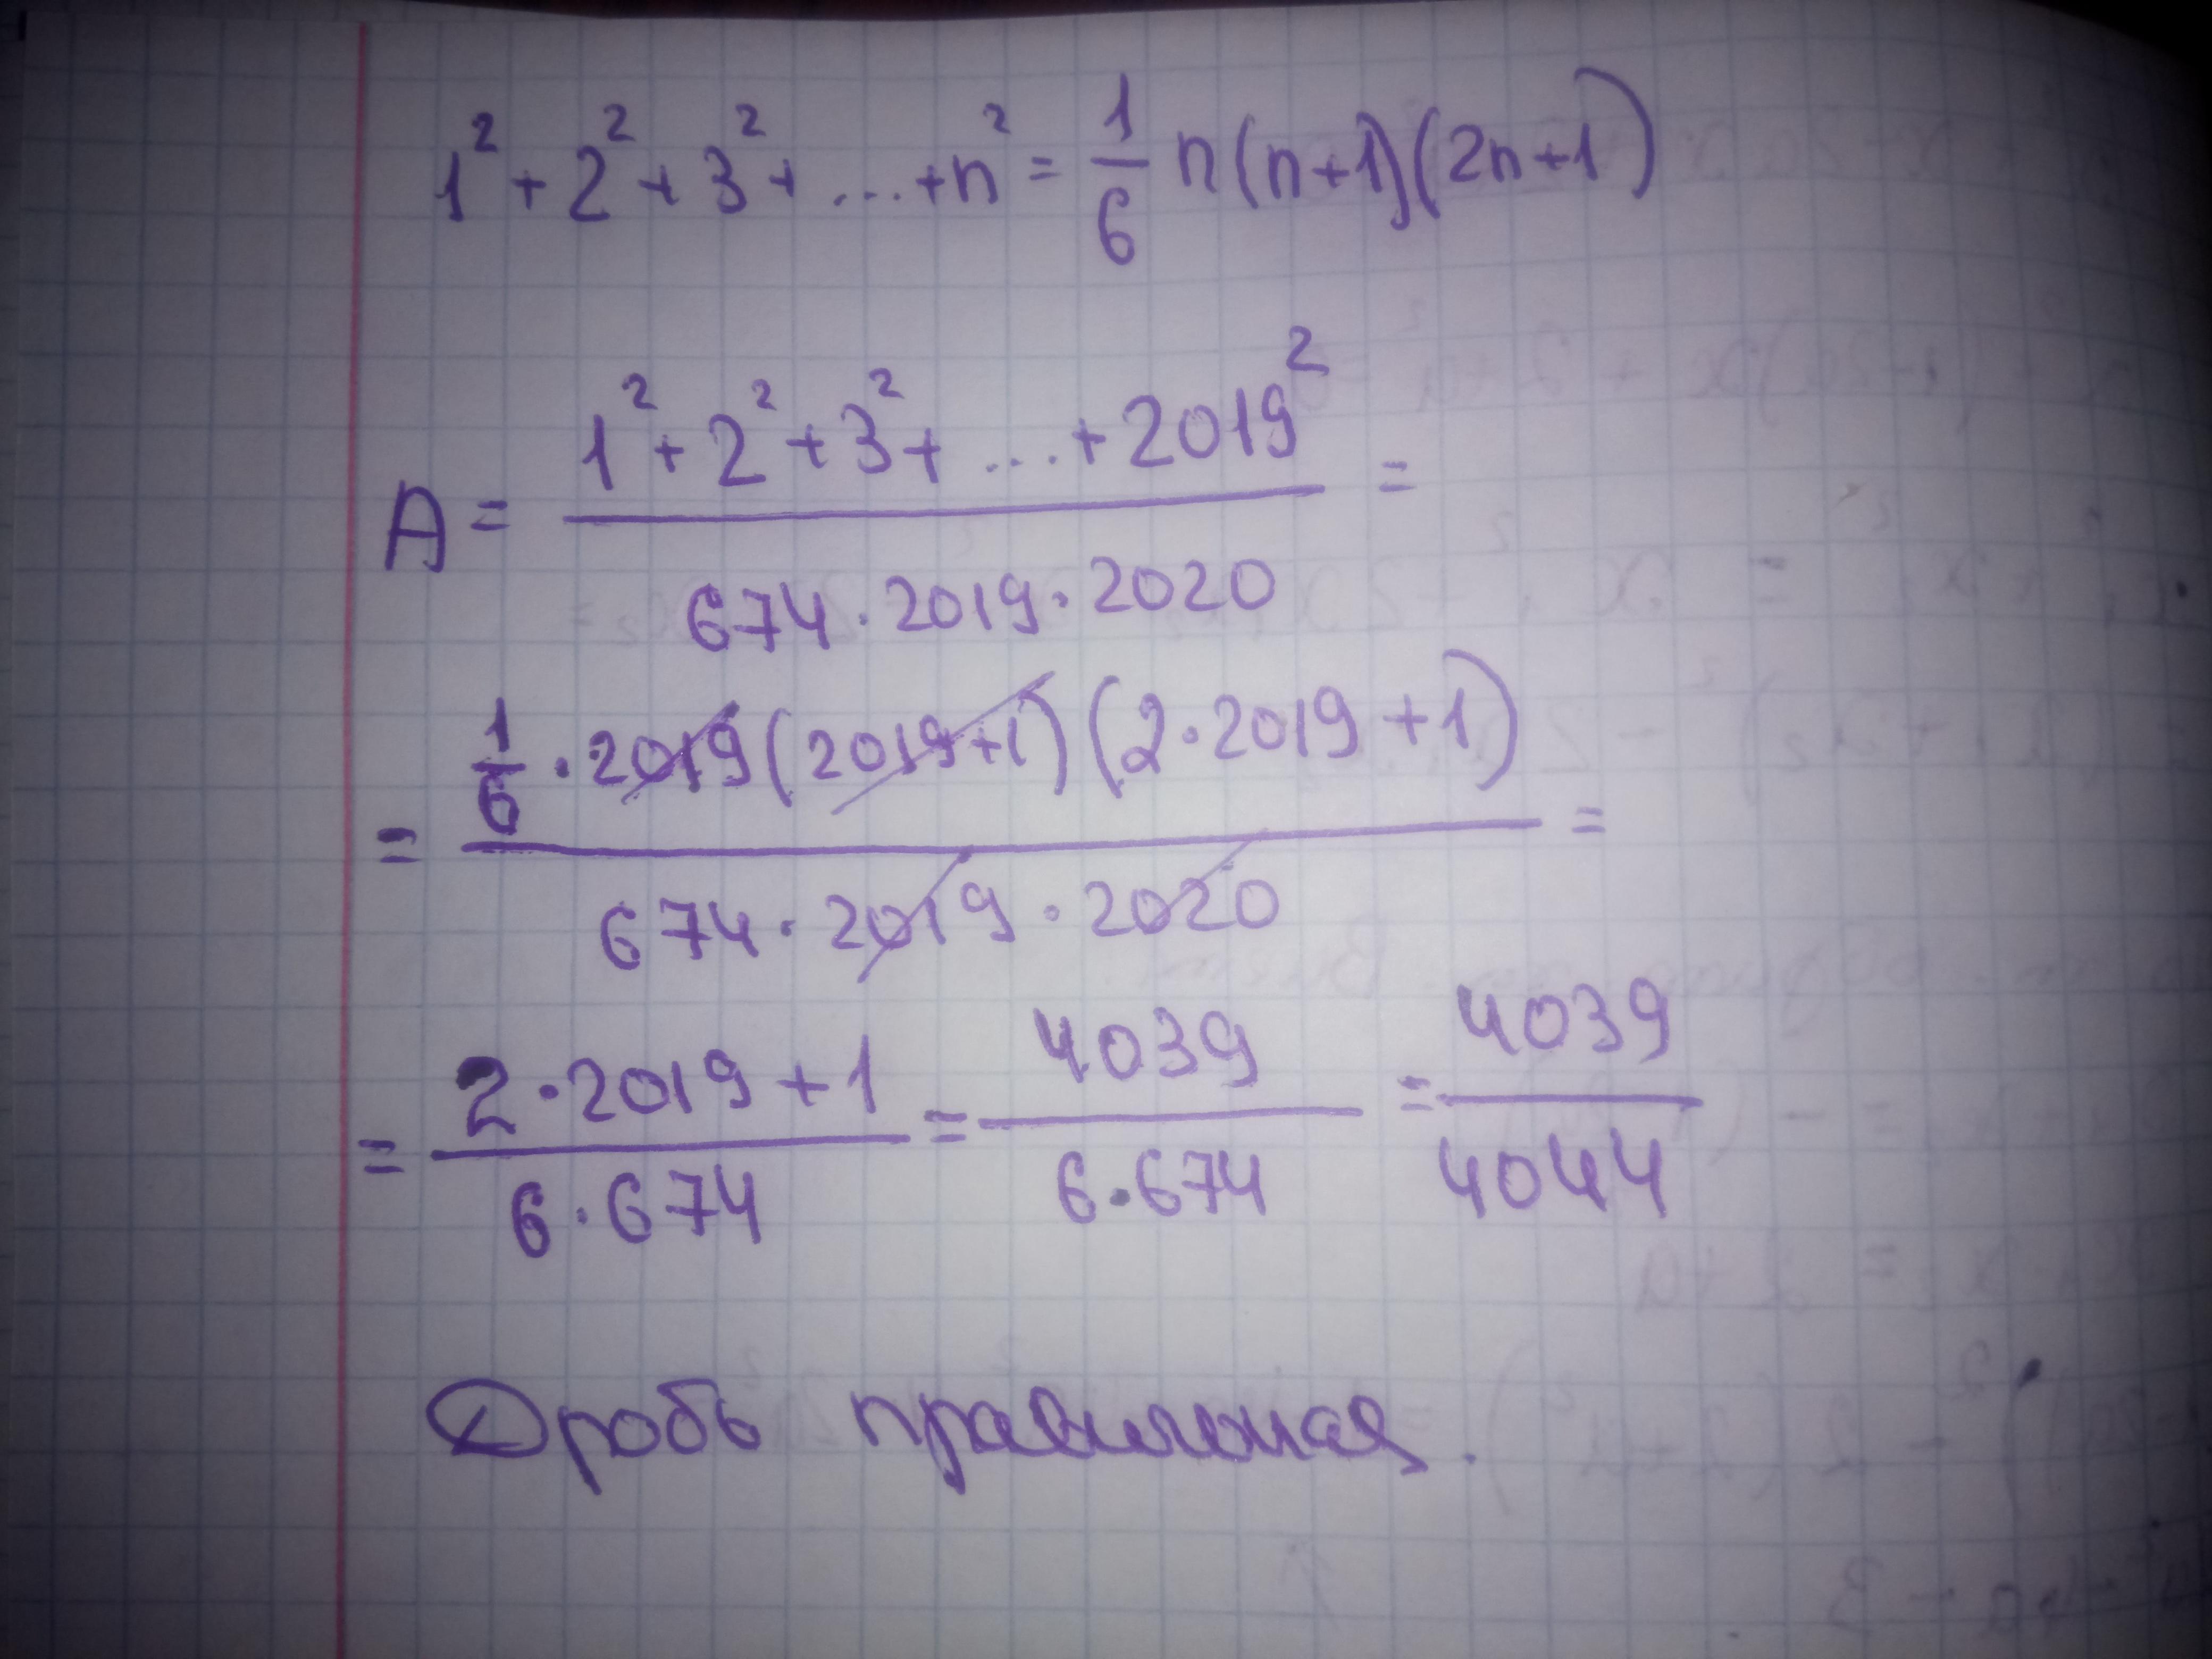 1² + 2² + 3² + ... + n² = 1/6 n(n+1)(2n+1)
A = (1² + 2² + 3² + ... + 2019²)/(674 · 2019 · 2020) =
= (1/6 · 2019(2019+1)(2·2019+1))/(674 · 2019 · 2020) =
= (2·2019+1)/(6·674) = 4039/(6·674) = 4039/4044
Дробь правильная.